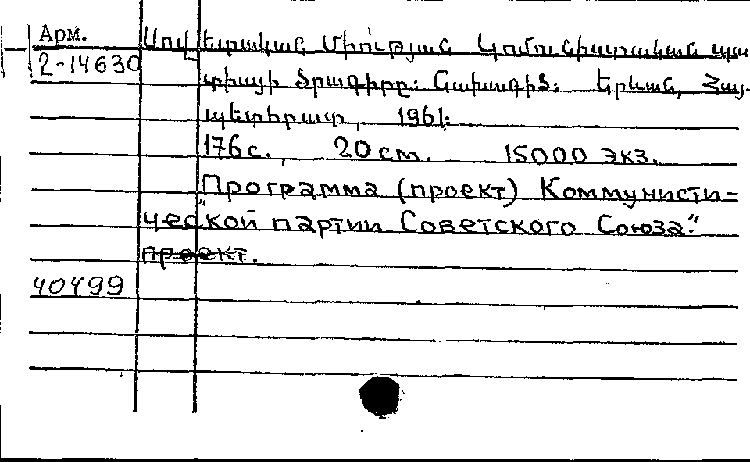 Арм.
2-14630
Սովետական Միության Կոմունիստական պար
տիայի ծրագիրը: Նախագիծ: Երևան, Հայ-
պետհրատ, 1961:
176 с., 20 cm. 15000 экз.
"Программа (проект) Коммунисти-
ческой партии Советского Союза."
проект.
40499